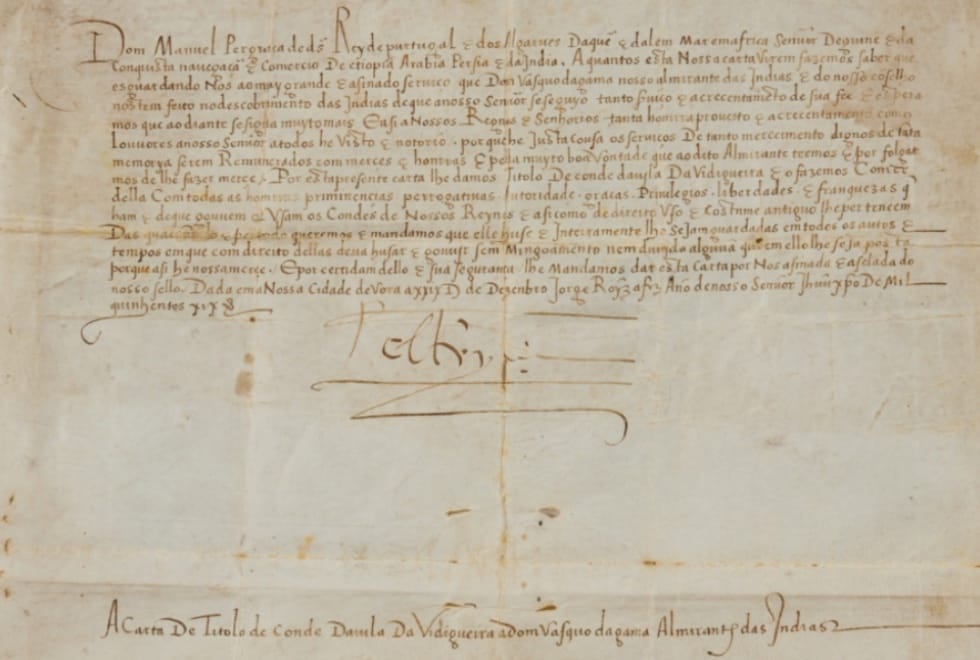 Dom Manuel Per graça de ds Rey de purtugal & dos Algarves Daquẽ & dalem Mar em africa Senũor De guine & da
Conquista navegaçã & Comercio De etiopia Arabia Persia & da India. A quantos esta Nossa carta virem fazemos saber que
esguardando Nos ao muy grande & asinado serviço que Don Vasquo da gama nosso almirante das Indias & do nosso cõselho
nos tem feito no descobrimento das Indias de que a nosso Senũor se seguyo tanto &acrecentamẽto de sua fee & espera
mos que ao diante se siga muyto mais E asi a Nossos Reynos & Senhorios tanta homrra proveito & acrecentamento com
Louvores a nosso Senũor a todos he Visto & notorio. porque he Justa Cousa os serviços De tanto merecimento dignos de tãta
memorya serem Remunerados com merces & homras & pella muyto boa Võntade que ao dito Almirante temos & por folgar
mos de lhe fazer merce. Por esta presente carta lhe damos Titolo De conde da vila Da Vidigueira & o fazemos Comde
della Com todas as homras priminencias perrogativas. Autoridade. graças. Privilegios. liberdades. & franquezas q̃
ham & de que gouvem & Usam os Condes de Nossos Reynos & asi como de direito Uso & Costume antiguo lhe pertencem
Das quaes em todo & per todo queremos & mandamos que elle huse & Inteiramente lhe Sejam guardadas em todos os autos &
tempos em que com direito dellas deva husar & gouvir sem Mingoamento nem duvida algũna que em ello lhe seja posta
porque asi he nossa merçe. E por certidam dello & sua segurança lhe Mandamos dar esta Carta por Nos asinada & aselada do
nosso sello. Dada em a Nossa Cidade de Vora a XXIX Ds de Dezenbro Jorge Royz a fez Ano de nosso Senũor Jhuũ xp̃o De Mil
quinhentos xix
el Rey
A Carta De Titolo de Conde Da vila Da Vidigueira a Dom Vasquo da gama Almirante das Indias